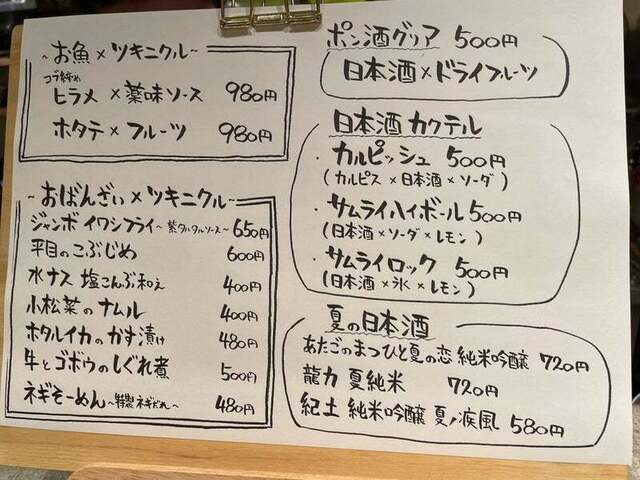 ~お魚×ツキニクル~
コブ締め
ヒラメ × 薬味ソース 980円
ホタテ×フルーツ 980円
~おばんざい×ツキニクル~
ジャンボイワシフライ~紫タルタルソース~ 650円
平目のこぶじめ 600円
水ナス 塩こんぶ和え 400円
小松菜のナムル 400円
ホタルイカのかす漬け 480円
牛とゴボウのしぐれ煮 500円
ネギそーめん~特製ネギだれ~ 480円
ポン酒グリア 500円
日本酒×ドライフルーツ
日本酒カクテル
・カルピッシュ 500円
(カルピス×日本酒×ソーダ)
・サムライハイボール 500円
(日本酒×ソーダ×レモン)
・サムライロック 500円
(日本酒×氷×レモン)
夏の日本酒
あたごのまつ ひと夏の恋 純米吟醸 720円
龍力 夏純米 720円
紀土 純米吟醸 夏ノ疾風 580円